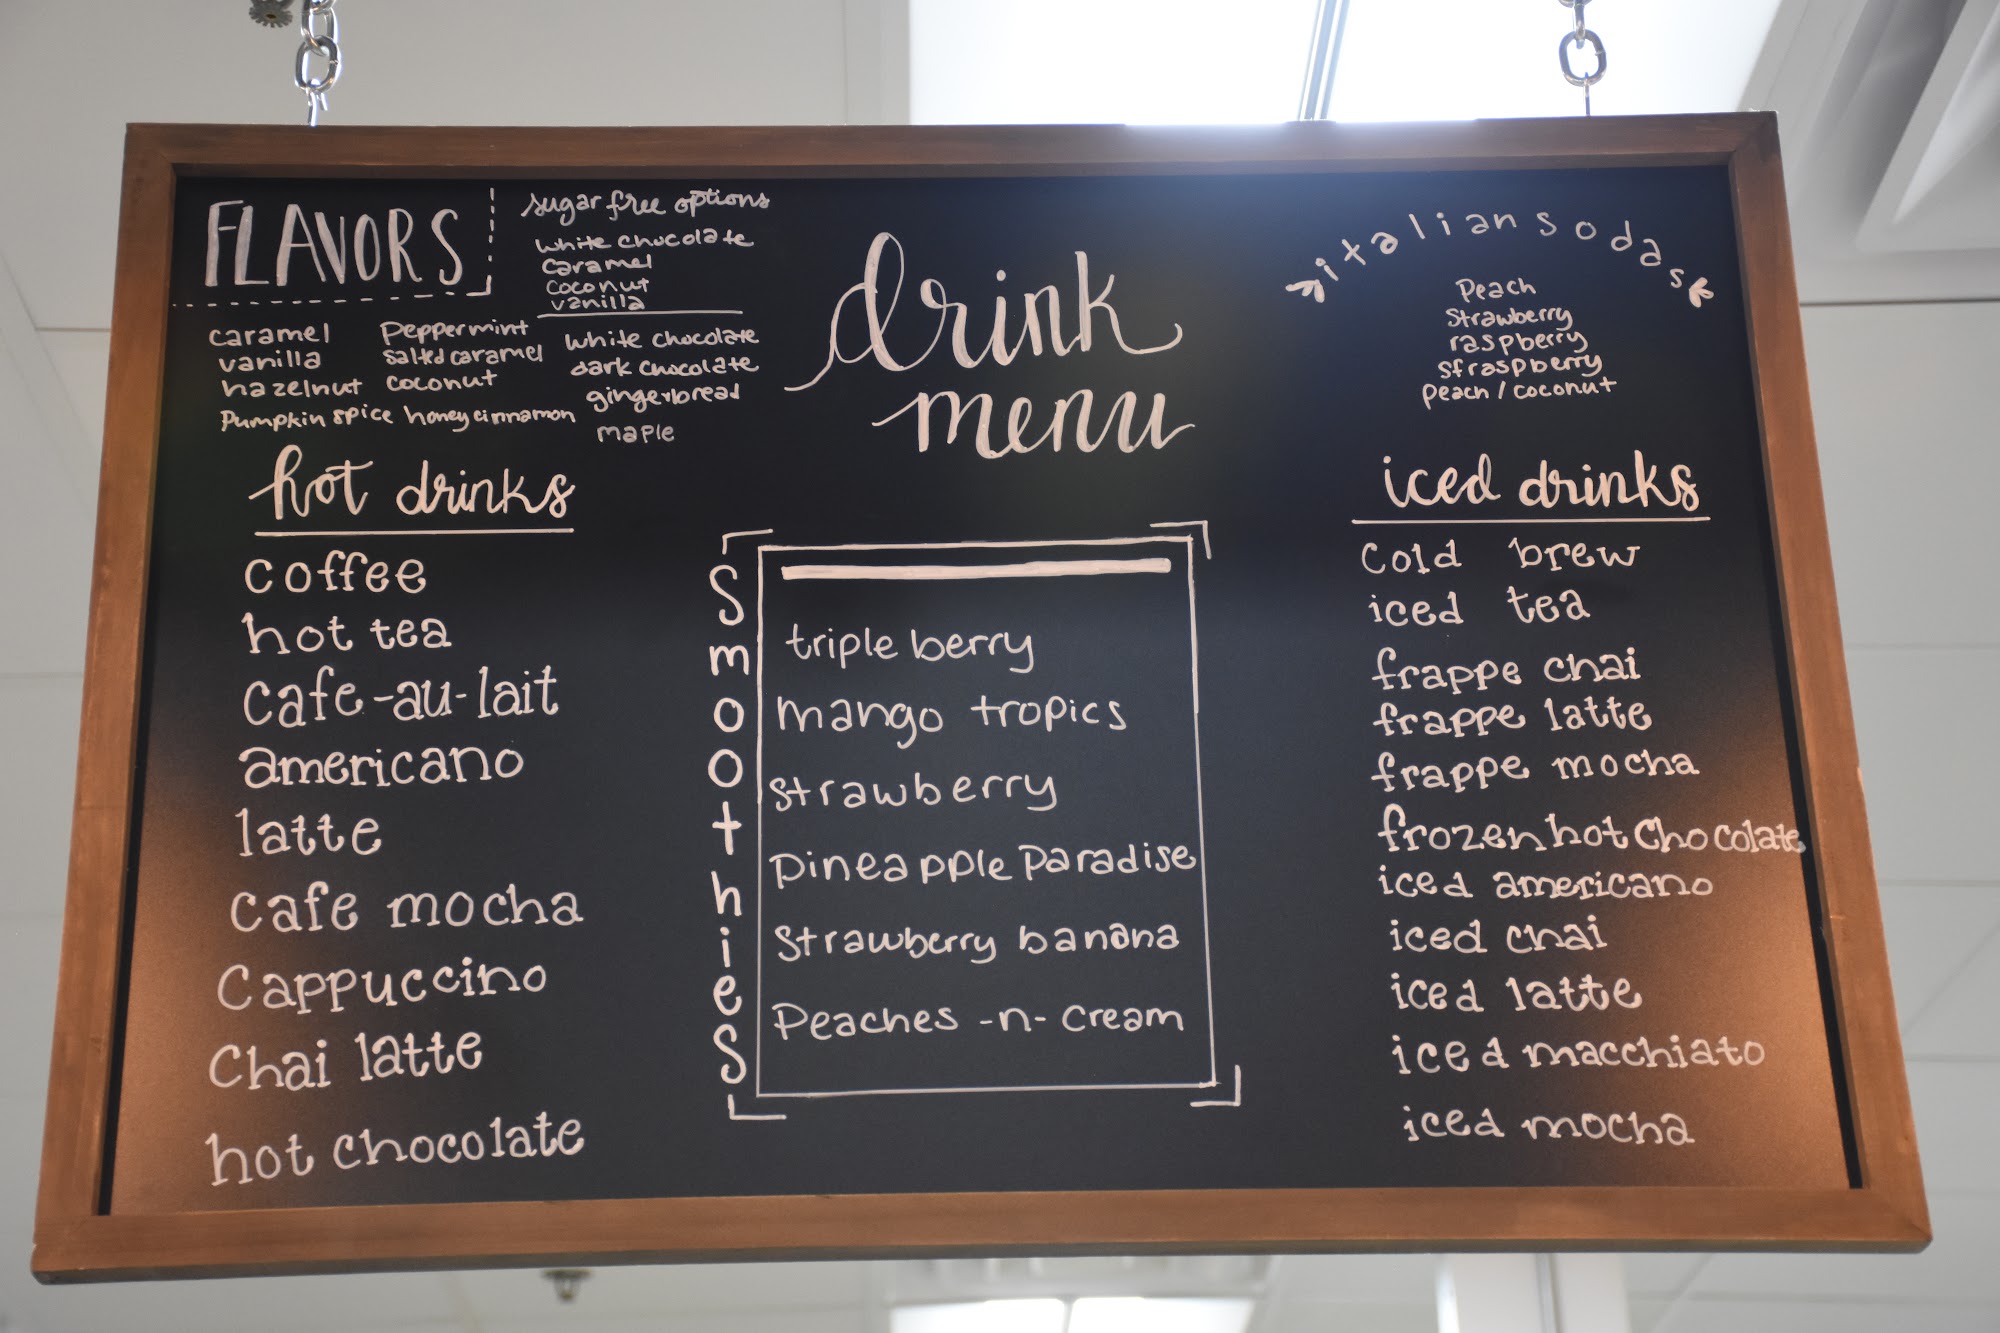 FLAVORS
caramel
vanilla
hazelnut
Peppermint
salted caramel
coconut
Pumpkin spice honey cinnamon
sugar free options
white chocolate
caramel
coconut
vanilla
white chocolate
dark chocolate
gingerbread
maple
drink
menu
italian sodas
Peach
Strawberry
raspberry
straspberry
Peach / coconut
hot drinks
coffee
hot tea
cafe-au-lait
americano
latte
cafe mocha
Cappuccino
Chai latte
hot chocolate
Smoothies
triple berry
mango tropics
strawberry
pineapple Paradise
Strawberry banana
Peaches -n- cream
iced drinks
Cold brew
iced tea
frappe chai
frappe latte
frappe mocha
frozen hot Chocolate
iced americano
iced chai
iced latte
iced macchiato
iced mocha